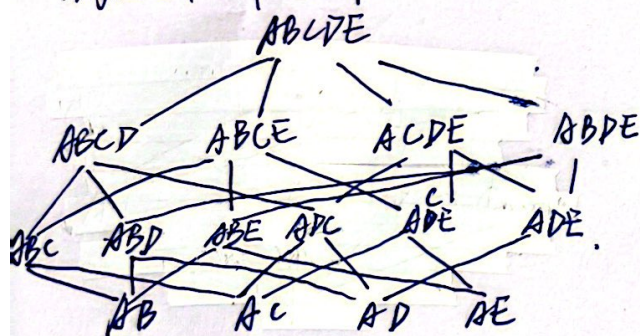 ABCDE
ABCD ABCE ACDE ABDE
ABC ABD ABE ADC ACE ADE
AB AC AD AE